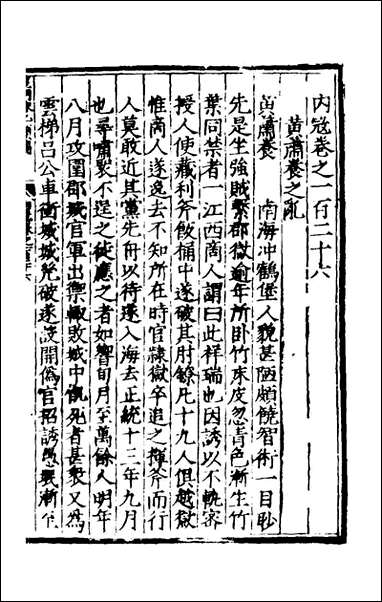 內寇卷之一百二十六
黃蕭養之亂
黃蕭養 南海沖鶴堡人貌甚陋頗饒智術一目眇
先是坐強賊繫郡獄逾年所卧竹床皮忽青色漸生竹
葉同禁者一江西商人謂曰此祥瑞也因誘以不軌密
授人使藏利斧飯桶中遂破其肘鐐凡十九人俱越獄
惟商人遂逸去不知所在時官隷獄卒追之揮斧而行
人莫敢近其黨先舟以待遂入海去正統十三年九月
也尋嘯聚不逞之徒應之者如響旬月至萬餘人明年
八月攻圍郡城官軍出禦輒敗城中飢死者甚衆又為
雲梯呂公車衝城城幾破遂設開偽官招誘愚衆漸